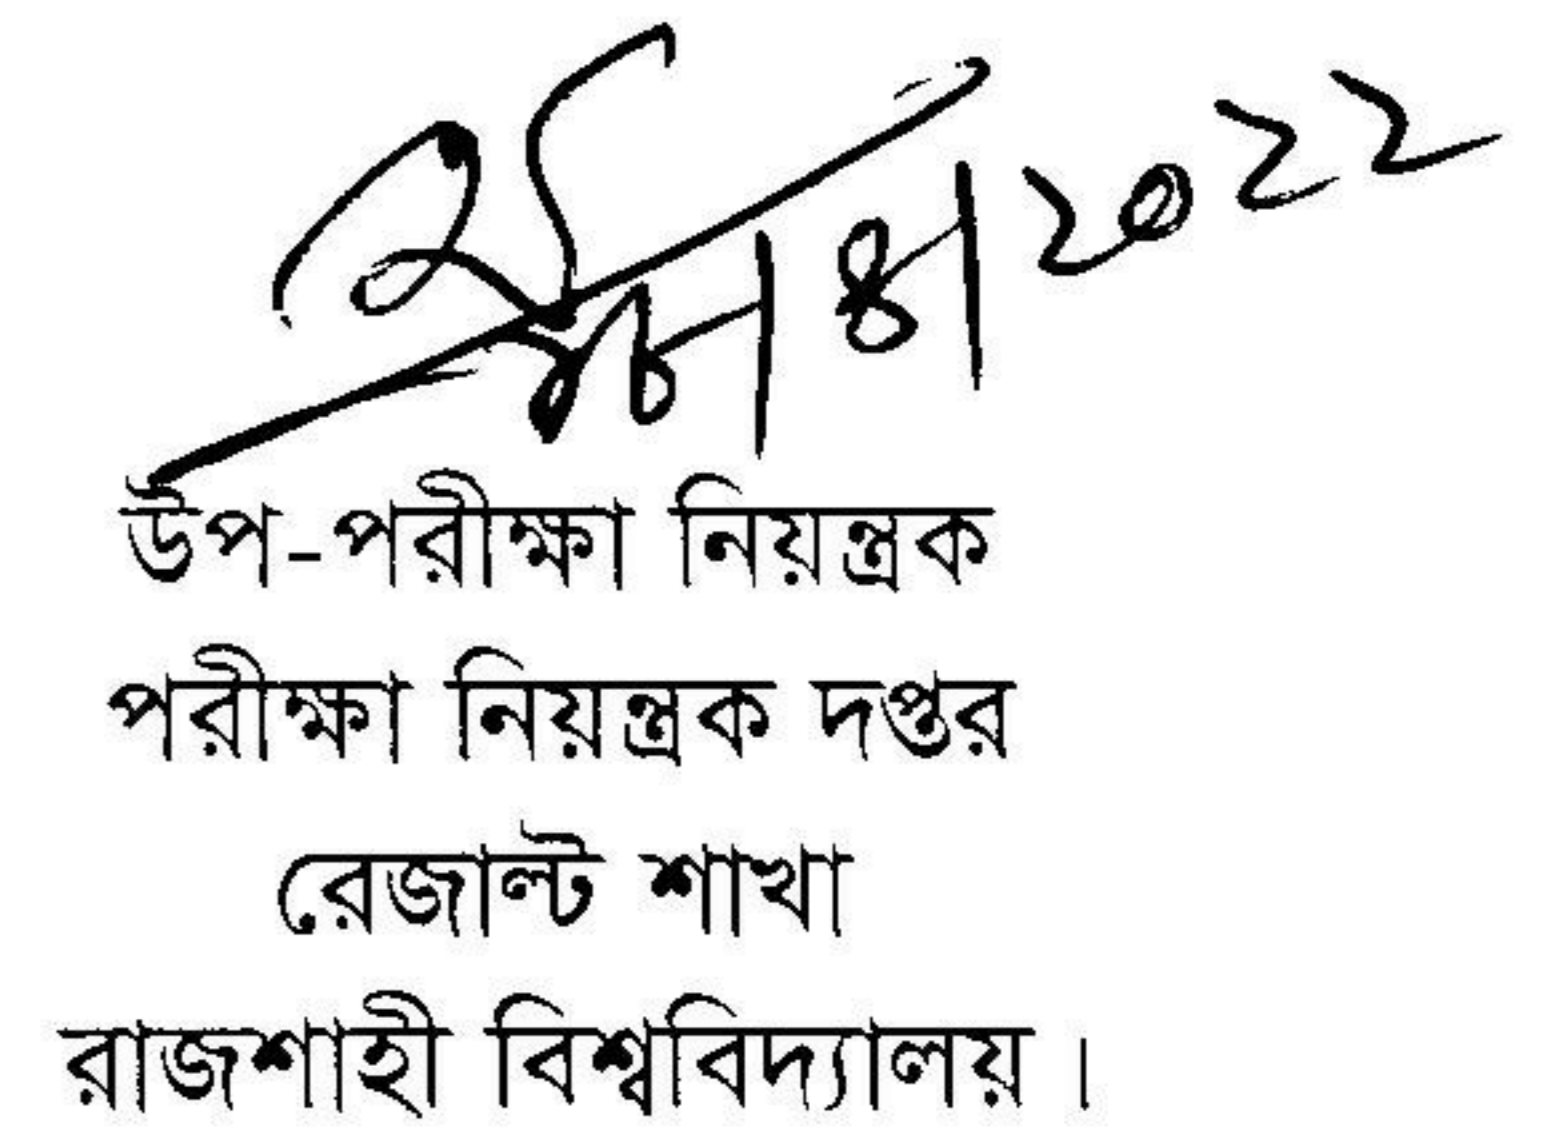 ২০২২
উপ-পরীক্ষা নিয়ন্ত্রক
পরীক্ষা নিয়ন্ত্রক দপ্তর
রেজাল্ট শাখা
রাজশাহী বিশ্ববিদ্যালয়।